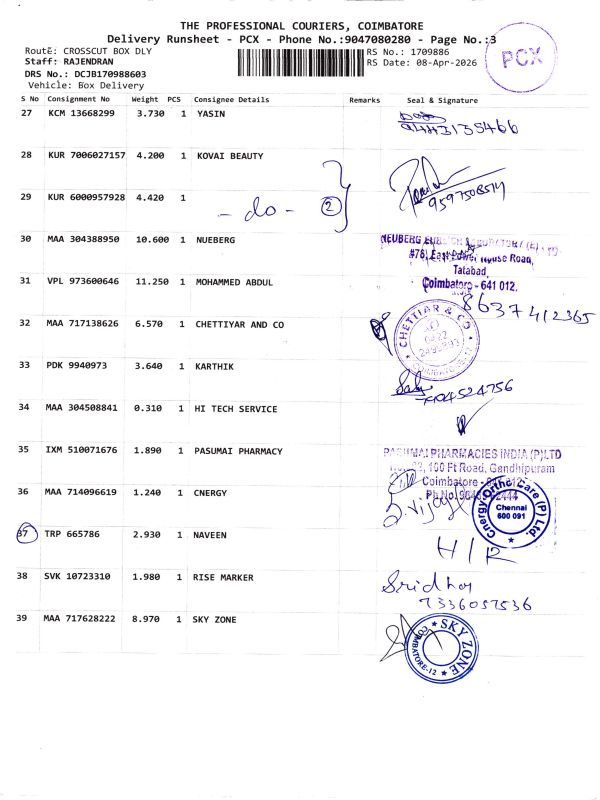 THE PROFESSIONAL COURIERS, COIMBATORE
Delivery Runsheet - PCX - Phone No.:9047080280 - Page No.:3
Route: CROSSCUT BOX DLY
RS No.: 1709886
PCX
Staff: RAJENDRAN
RS Date: 08-Apr-2026
DRS No.: DCJB170988603
Vehicle: Box Delivery
S No Consignment No Weight PCS Consignee Details Remarks Seal & Signature
27 KCM 13668299 3.730 1 YASIN
9443135466
28 KUR 7006027157 4.200 1 KOVAI BEAUTY
9597508514
29 KUR 6000957928 4.420 1
- do - 2
30 MAA 304388950 10.600 1 NUEBERG
#78, East Power House Road,
Tatabad,
Coimbatore - 641 012.
31 VPL 973600646 11.250 1 MOHAMMED ABDUL
8637412365
32 MAA 717138626 6.570 1 CHETTIYAR AND CO
CHETTIAR & CO
COIMBATORE-12
33 PDK 9940973 3.640 1 KARTHIK
34 MAA 304508841 0.310 1 HI TECH SERVICE
35 IXM 510071676 1.890 1 PASUMAI PHARMACY
PASUMAI PHARMACIES INDIA (P)LTD
100 Ft Road, Gandhipuram
Coimbatore -
Ph No
36 MAA 714096619 1.240 1 CNERGY
Cnergy Ortho Care (P) Ltd.
Chennai
600 091
37 TRP 665786 2.930 1 NAVEEN
H/R
38 SVK 10723310 1.980 1 RISE MARKER
Sridhar
7336057536
39 MAA 717628222 8.970 1 SKY ZONE
SKY ZONE
COIMBATORE-12